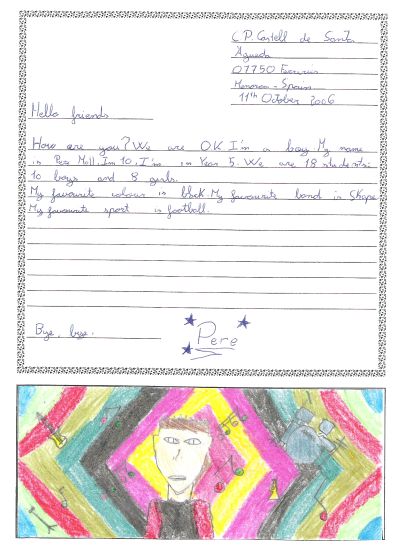 C.P. Castell de Santa
Agueda
07750 Ferreries
Menorca - Spain
11th October 2006
Hello friends
How are you? We are OK I'm a boy My name
is Pere Moll. Im 10, I'm in Year 5. We are 18 students:
10 boys and 8 girls.
My favourite colour is black. My favourite band is Skape
My favourite sport is football.
Bye, bye.
Pere